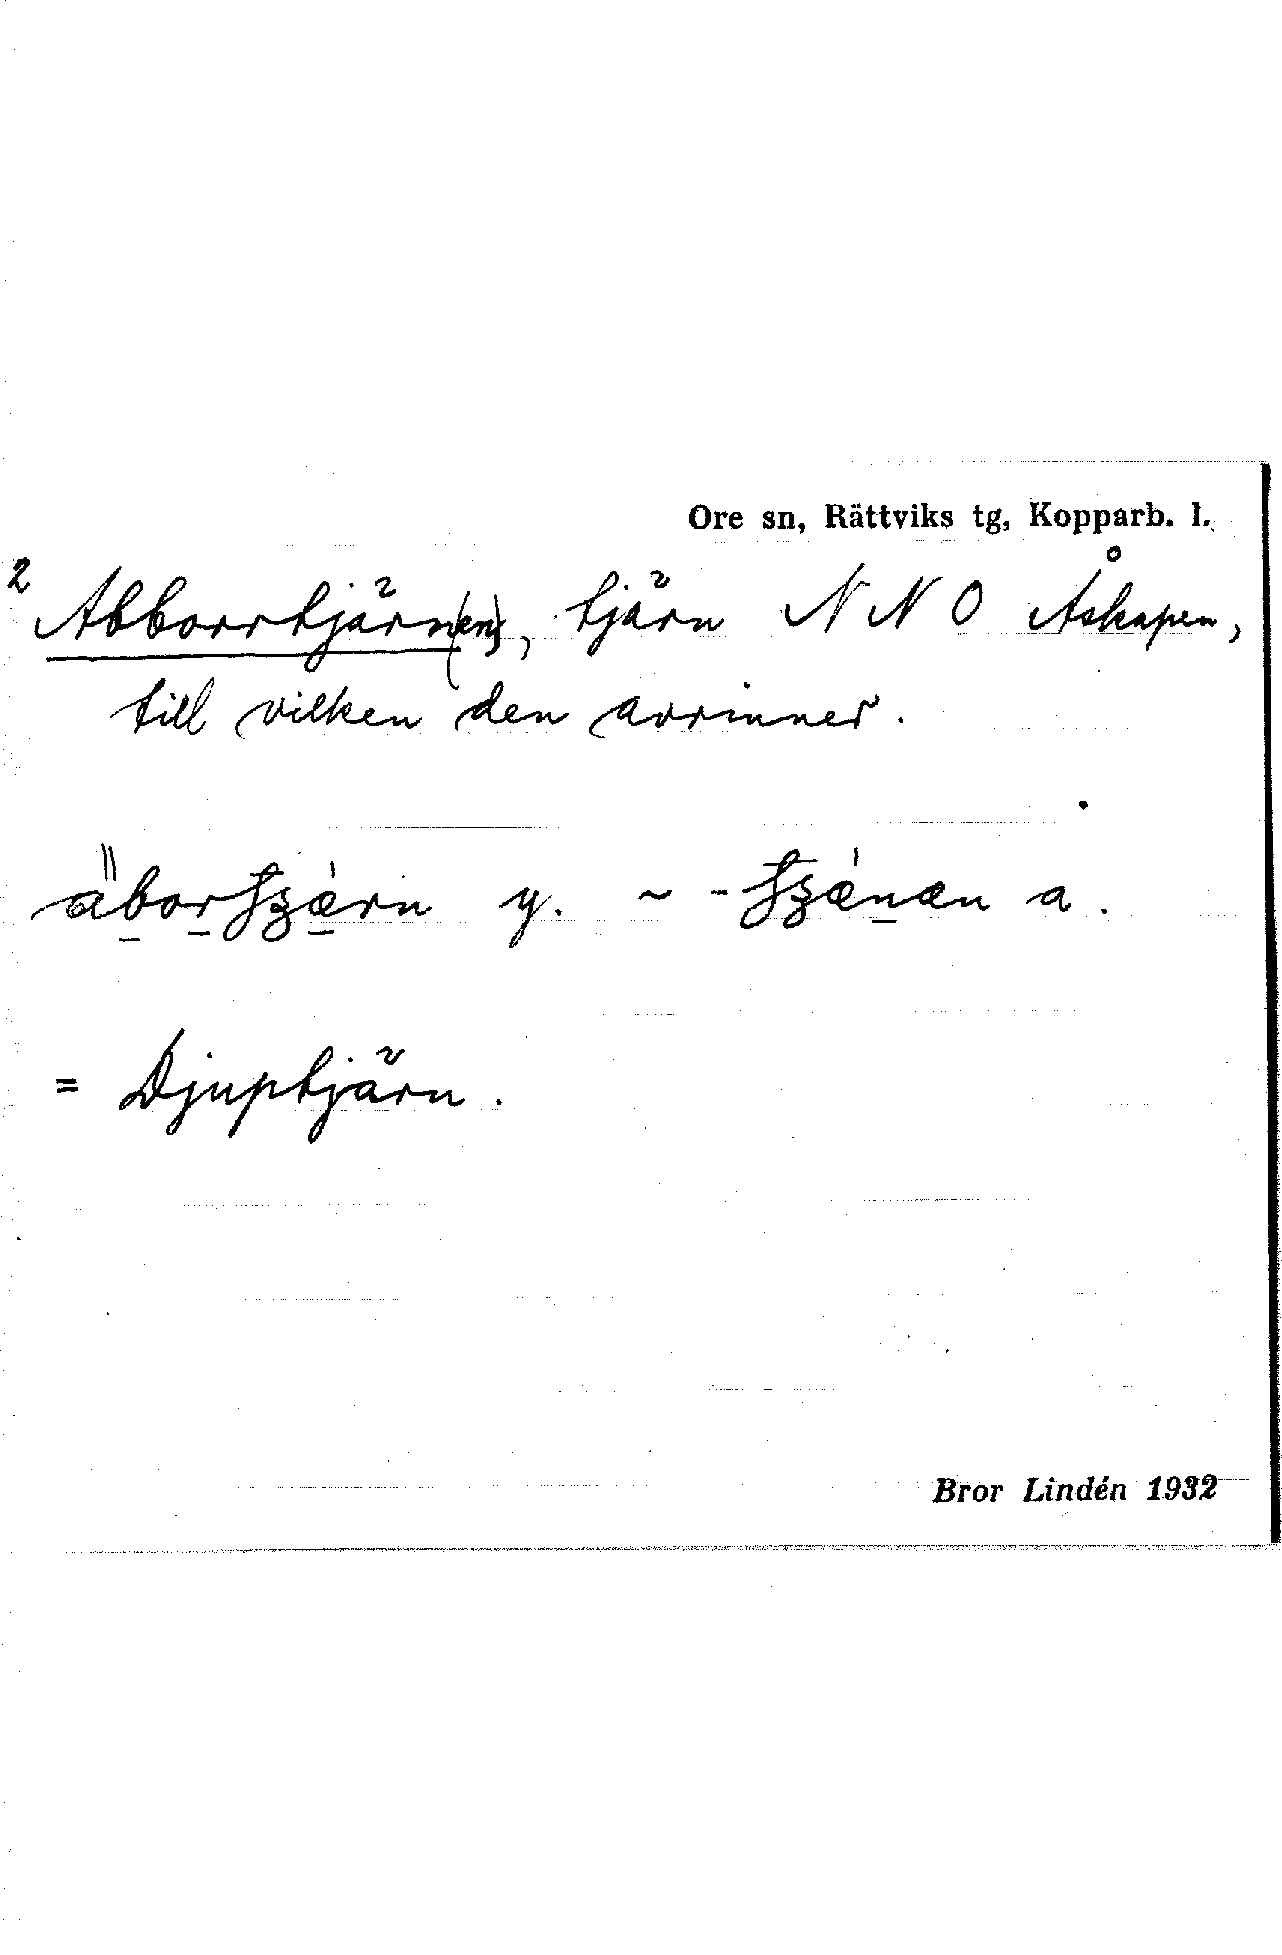 Ore sn, Rättviks tg, Kopparb. l.
2 Abborrtjärn(en), tjärn NNO Åskapen,
till vilken den avrinner.
y. ~ - a.
= Djuptjärn.
Bror Lindén 1932